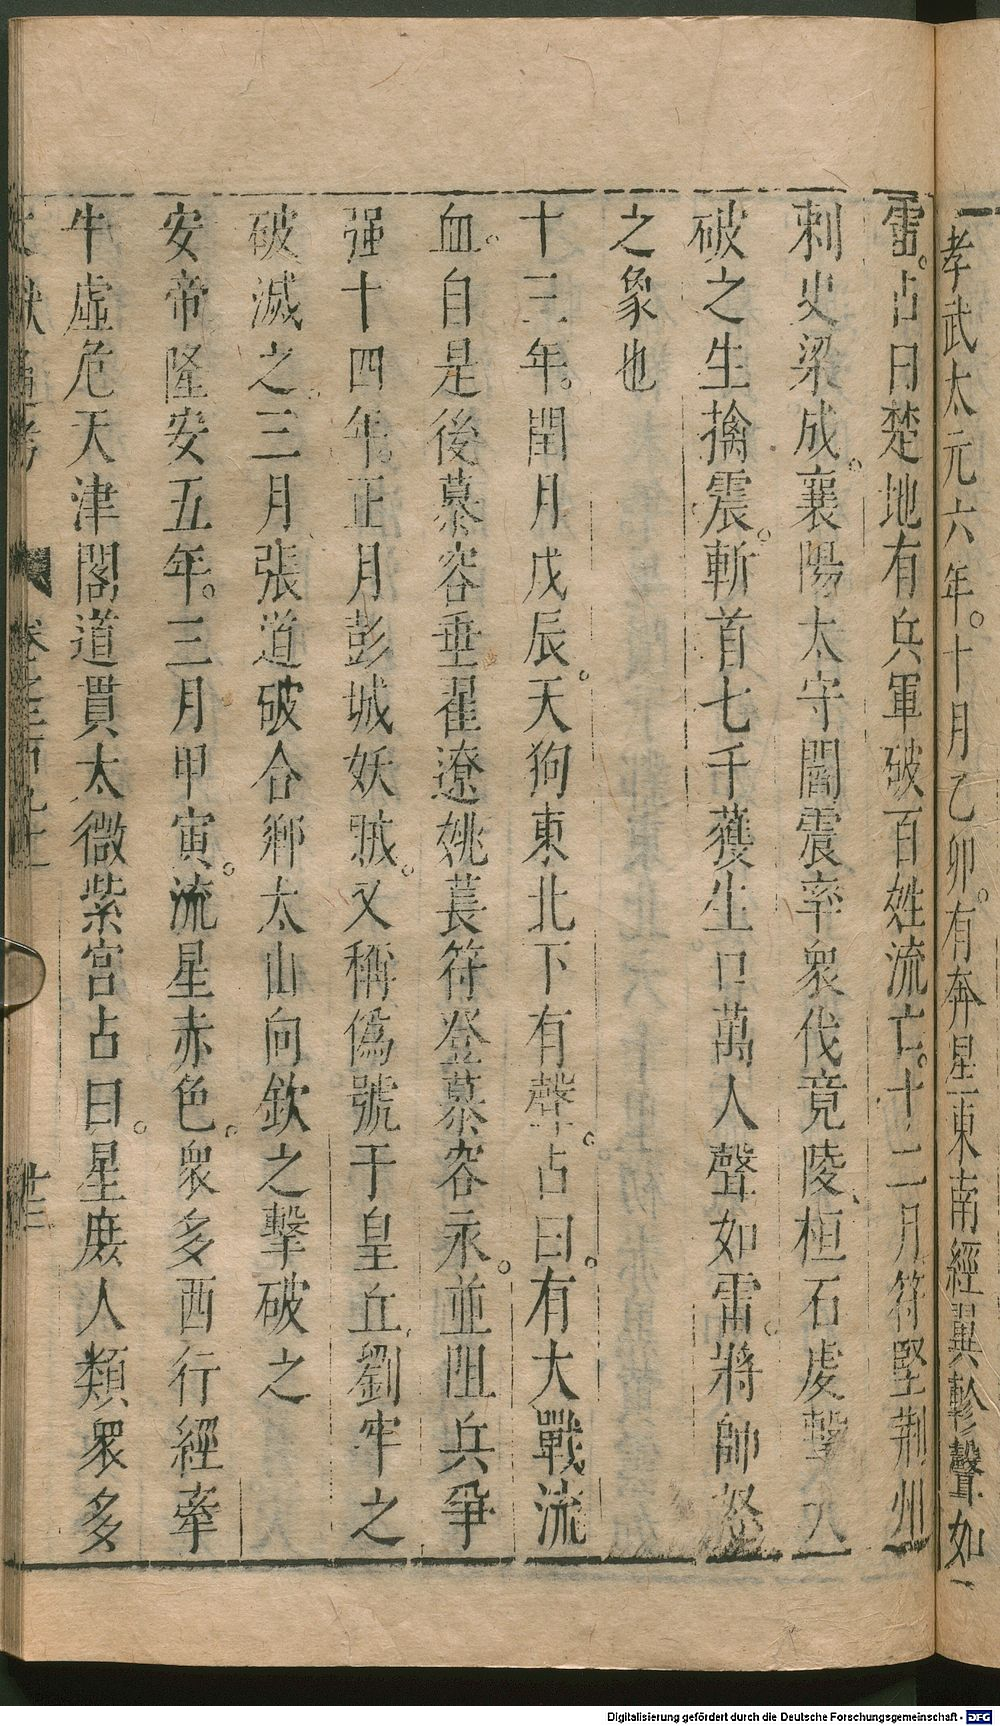 孝武太元六年。十月乙卯。有奔星東南經翼軫聲如
雷。占曰楚地有兵軍破百姓流亡。十二月符堅荆州
刺史梁成。襄陽太守閻震率衆伐竟陵、桓石虔擊大
破之生擒震。斬首七千獲生口萬人聲如雷。將帥怒
之象也
十三年。閏月戊辰。天狗東北下有聲。占曰。有大戰流
血。自是後慕容垂翟遼姚萇符登慕容永。並阻兵爭
强十四年。正月彭城妖賊。又稱僞號于皇丘、劉牢之
破滅之。三月張道破合鄉太山向欽之擊破之
安帝隆安五年。三月甲寅。流星赤色。衆多西行經牽
牛虛危天津閣道貫太微紫宮占曰。星庻人類衆多
Digitalisierung gefördert durch die Deutsche Forschungsgemeinschaft - DFG